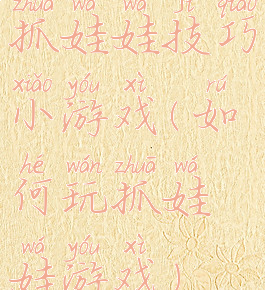 zhuā wá wá jì qiǎo
抓娃娃技巧
xiǎo yóu xì rú
小游戏(如
hé wán zhuā wá
何玩抓娃
wá yóu xì
娃游戏)